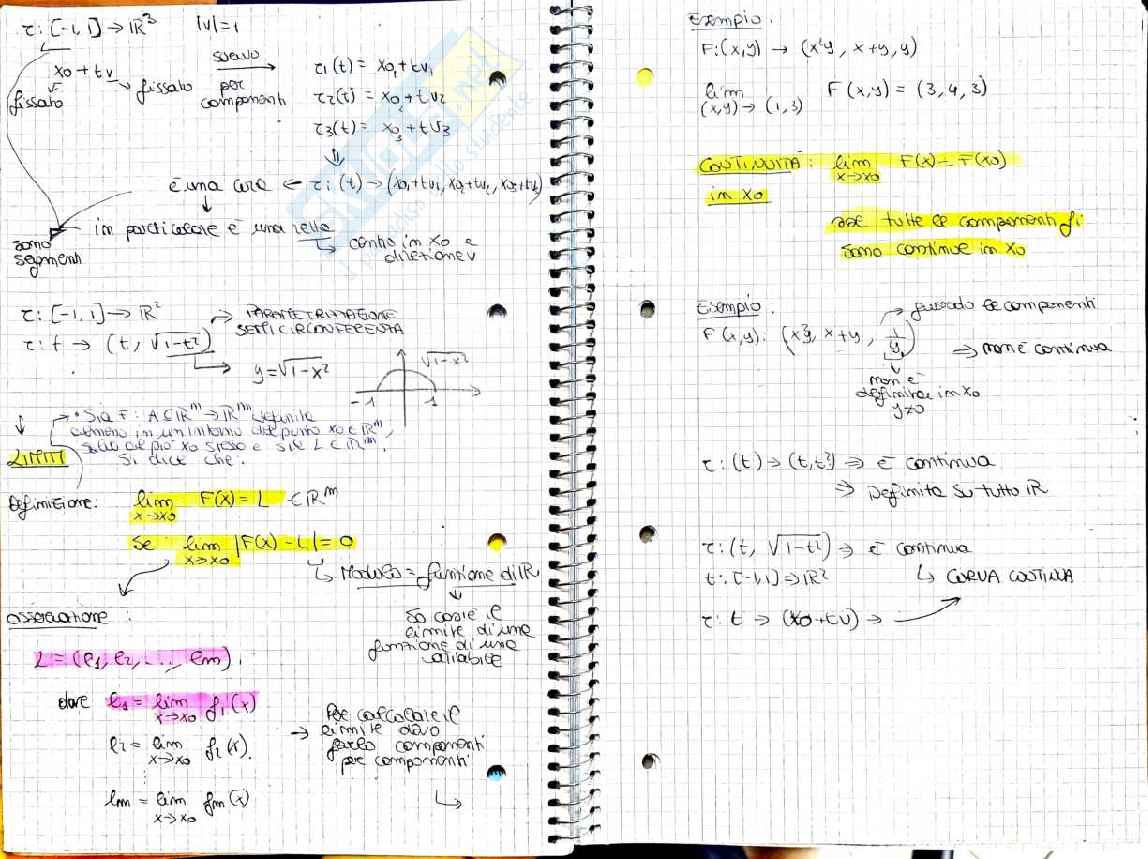 τ: [-1, 1] → ℝ³   |v|=1
x0 + tv
fissato
fissato
scrivo
per
componenti
τ1(t) = x01 + tv1
τ2(t) = x02 + tv2
τ3(t) = x03 + tv3
⇓
è una curva ← τ: (t) → (x01+tv1, x02+tv2, x03+tv3)
in particolare è una retta
sono
segmenti
centro in x0 e
direzione v
τ: [-1, 1] → ℝ²
τ: t → (t, √1-t²)
→ PARAMETRIZZAZIONE
SEMICIRCONFERENZA
y = √1-x²
√1-x²
-1   1
• Sia F: A⊆ℝⁿ → ℝᵐ definita
almeno in un intorno del punto x0 ∈ ℝⁿ,
salvo al più x0 stesso e sia L ∈ ℝᵐ.
Si dice che:
LIMITI
Definizione: lim x→x0 F(x) = L ∈ ℝᵐ
se lim x→x0 |F(x) - L| = 0
↳ Modulo = funzione di ℝ
so cos'è il
limite di una
funzione di una
variabile
osservazione:
L = (l1, l2, ..., lm),
dove l1 = lim x→x0 f1(x)
l2 = lim x→x0 f2(x).
lm = lim x→x0 fm(x)
Per calcolare il
→ limite devo
farlo componenti
per componenti
Esempio:
F: (x,y) → (x²y, x+y, y)
lim (x,y)→(1,3) F(x,y) = (3, 4, 3)
CONTINUITÀ: lim x→x0 F(x) = F(x0)
in x0
sse tutte le componenti fi
sono continue in x0
Esempio.
F(x,y): (x²y, x+y, 1/y)
guardo le componenti
⇒ non è continua
non è
definita in x0
y≠0
τ: (t) → (t, t²) ⇒ è continua
⇒ Definita su tutto ℝ
τ: (t, √1-t²) ⇒ è continua
t: [-1, 1] → ℝ²   ↳ CURVA CONTINUA
τ: t → (x0 + tv) →